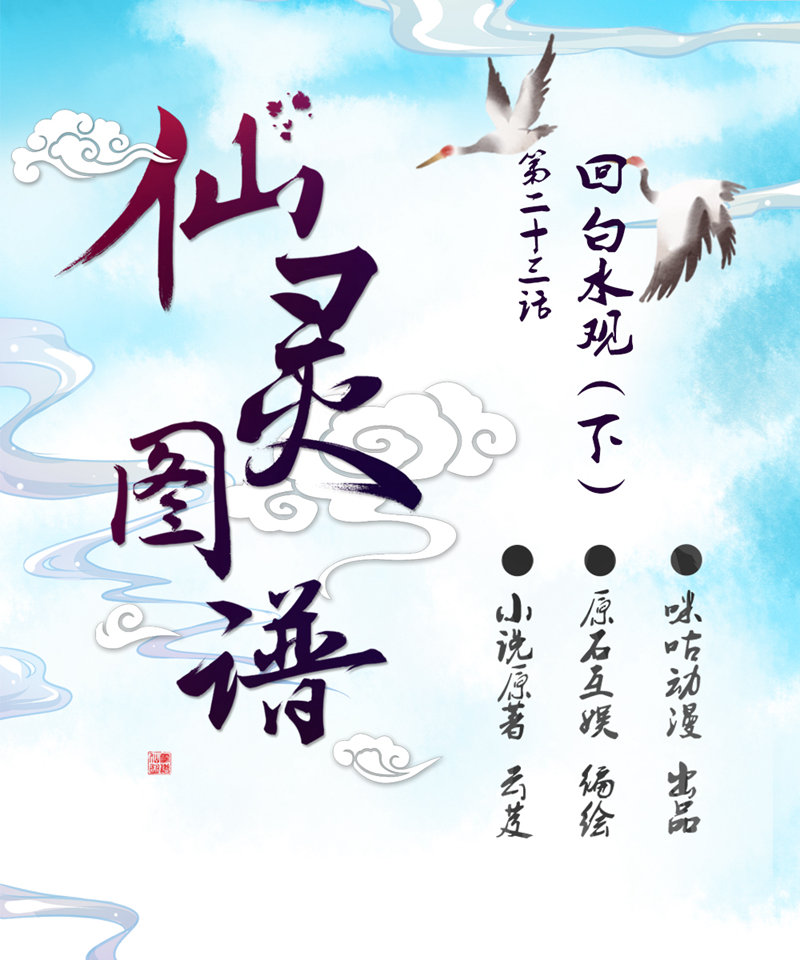 仙灵图谱
第二十三话
回白水观（下）
咪咕动漫 出品
原石互娱 编绘
小说原著 云芨